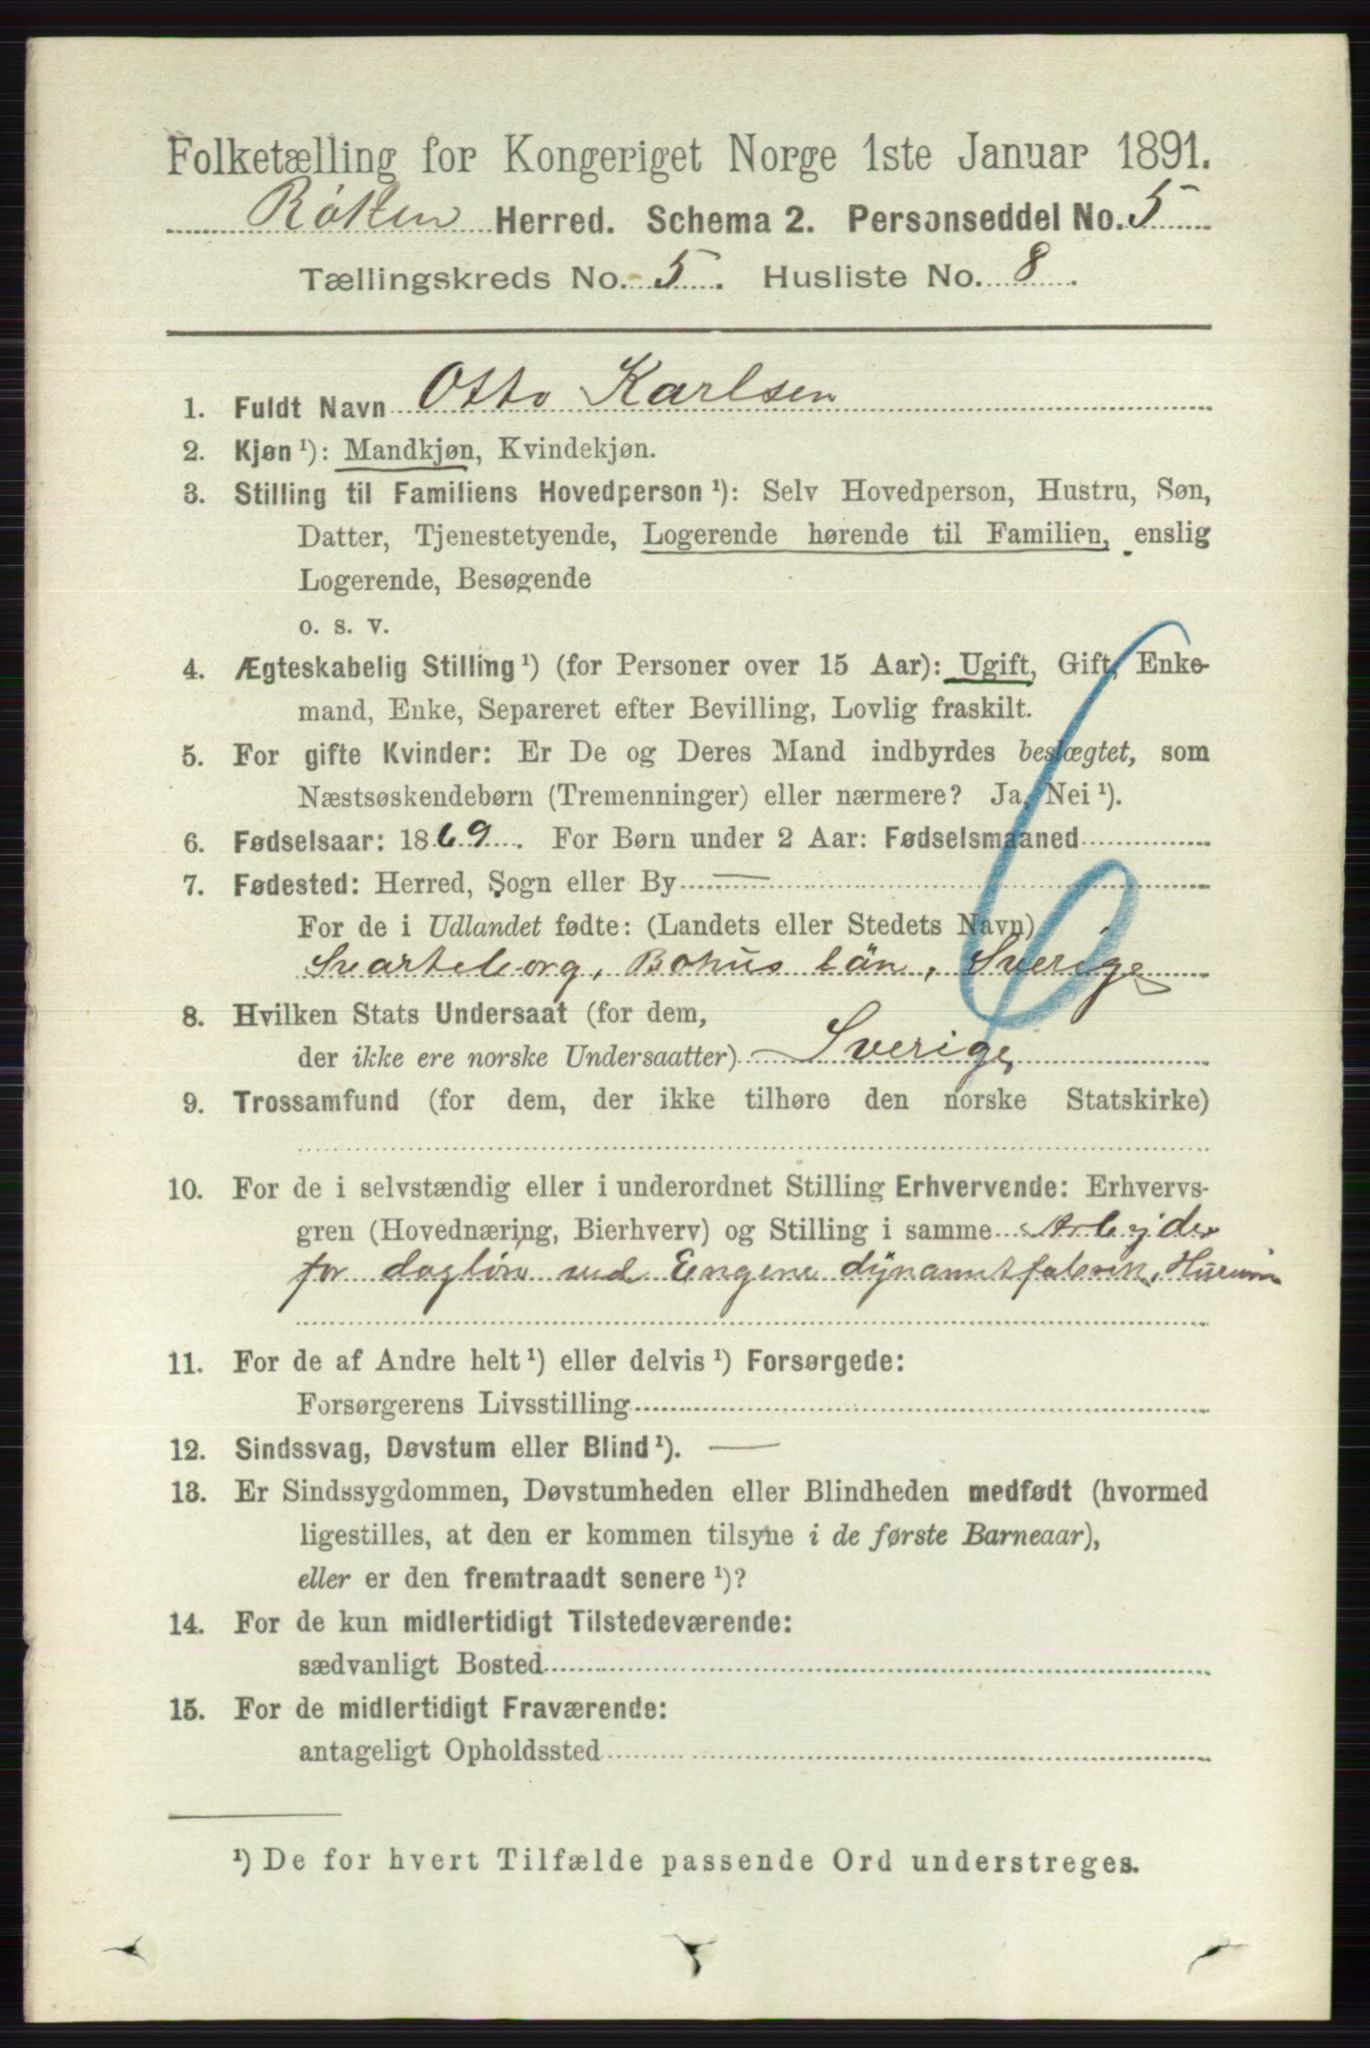 Folketælling for Kongeriget Norge 1ste Januar 1891.
Røken Herred. Schema 2. Personseddel No. 5
Tællingskreds No. 5. Husliste No. 8.
1. Fuldt Navn Otto Karlsen
2. Kjøn ¹): Mandkjøn, Kvindekjøn.
3. Stilling til Familiens Hovedperson ¹): Selv Hovedperson, Hustru, Søn,
Datter, Tjenestetyende, Logerende hørende til Familien, enslig
Logerende, Besøgende
o. s. v.
4. Ægteskabelig Stilling ¹) (for Personer over 15 Aar): Ugift, Gift, Enke-
mand, Enke, Separeret efter Bevilling, Lovlig fraskilt.
5. For gifte Kvinder: Er De og Deres Mand indbyrdes beslægtet, som
Næstsøskendebørn (Tremenninger) eller nærmere? Ja, Nei ¹).
6. Fødselsaar: 1869. For Børn under 2 Aar: Fødselsmaaned
7. Fødested: Herred, Sogn eller By —
For de i Udlandet fødte: (Landets eller Stedets Navn)
Svarteborg, Bohus län, Sverige
8. Hvilken Stats Undersaat (for dem,
der ikke ere norske Undersaatter) Sverige
9. Trossamfund (for dem, der ikke tilhøre den norske Statskirke)
10. For de i selvstændig eller i underordnet Stilling Erhvervende: Erhvervs-
gren (Hovednæring, Bierhverv) og Stilling i samme Arbejder
for dagløn ved Engene dynamitfabrik, Hurum
11. For de af Andre helt ¹) eller delvis ¹) Forsørgede:
Forsørgerens Livsstilling
12. Sindssvag, Døvstum eller Blind ¹). —
13. Er Sindssygdommen, Døvstumheden eller Blindheden medfødt (hvormed
ligestilles, at den er kommen tilsyne i de første Barneaar),
eller er den fremtraadt senere ¹)?
14. For de kun midlertidigt Tilstedeværende:
sædvanligt Bosted
15. For de midlertidigt Fraværende:
antageligt Opholdssted
¹) De for hvert Tilfælde passende Ord understreges.